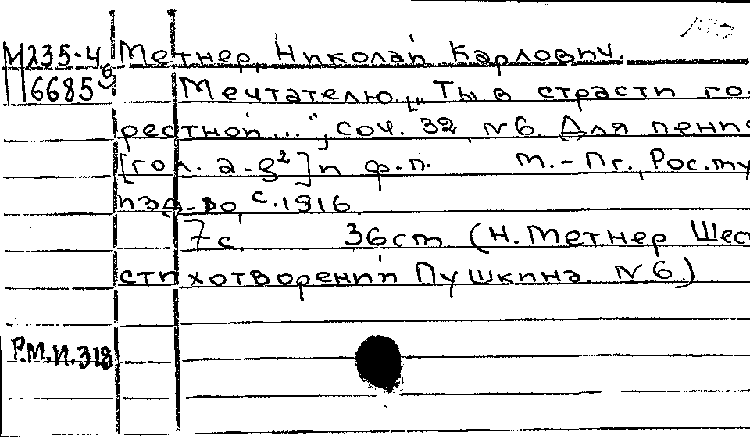 М235-4 Метнер, Николай Карлович.
П6685 Мечтателю. ["Ты в страсти го-
рестной...", соч. 32, N6. Для пения
[гол. a-g²] и ф.п. М.-Пг., Рос.му
изд-во, с.1916.
7с. 36см (Н. Метнер Шес
стихотворений Пушкина N6)
Р.М.И.318